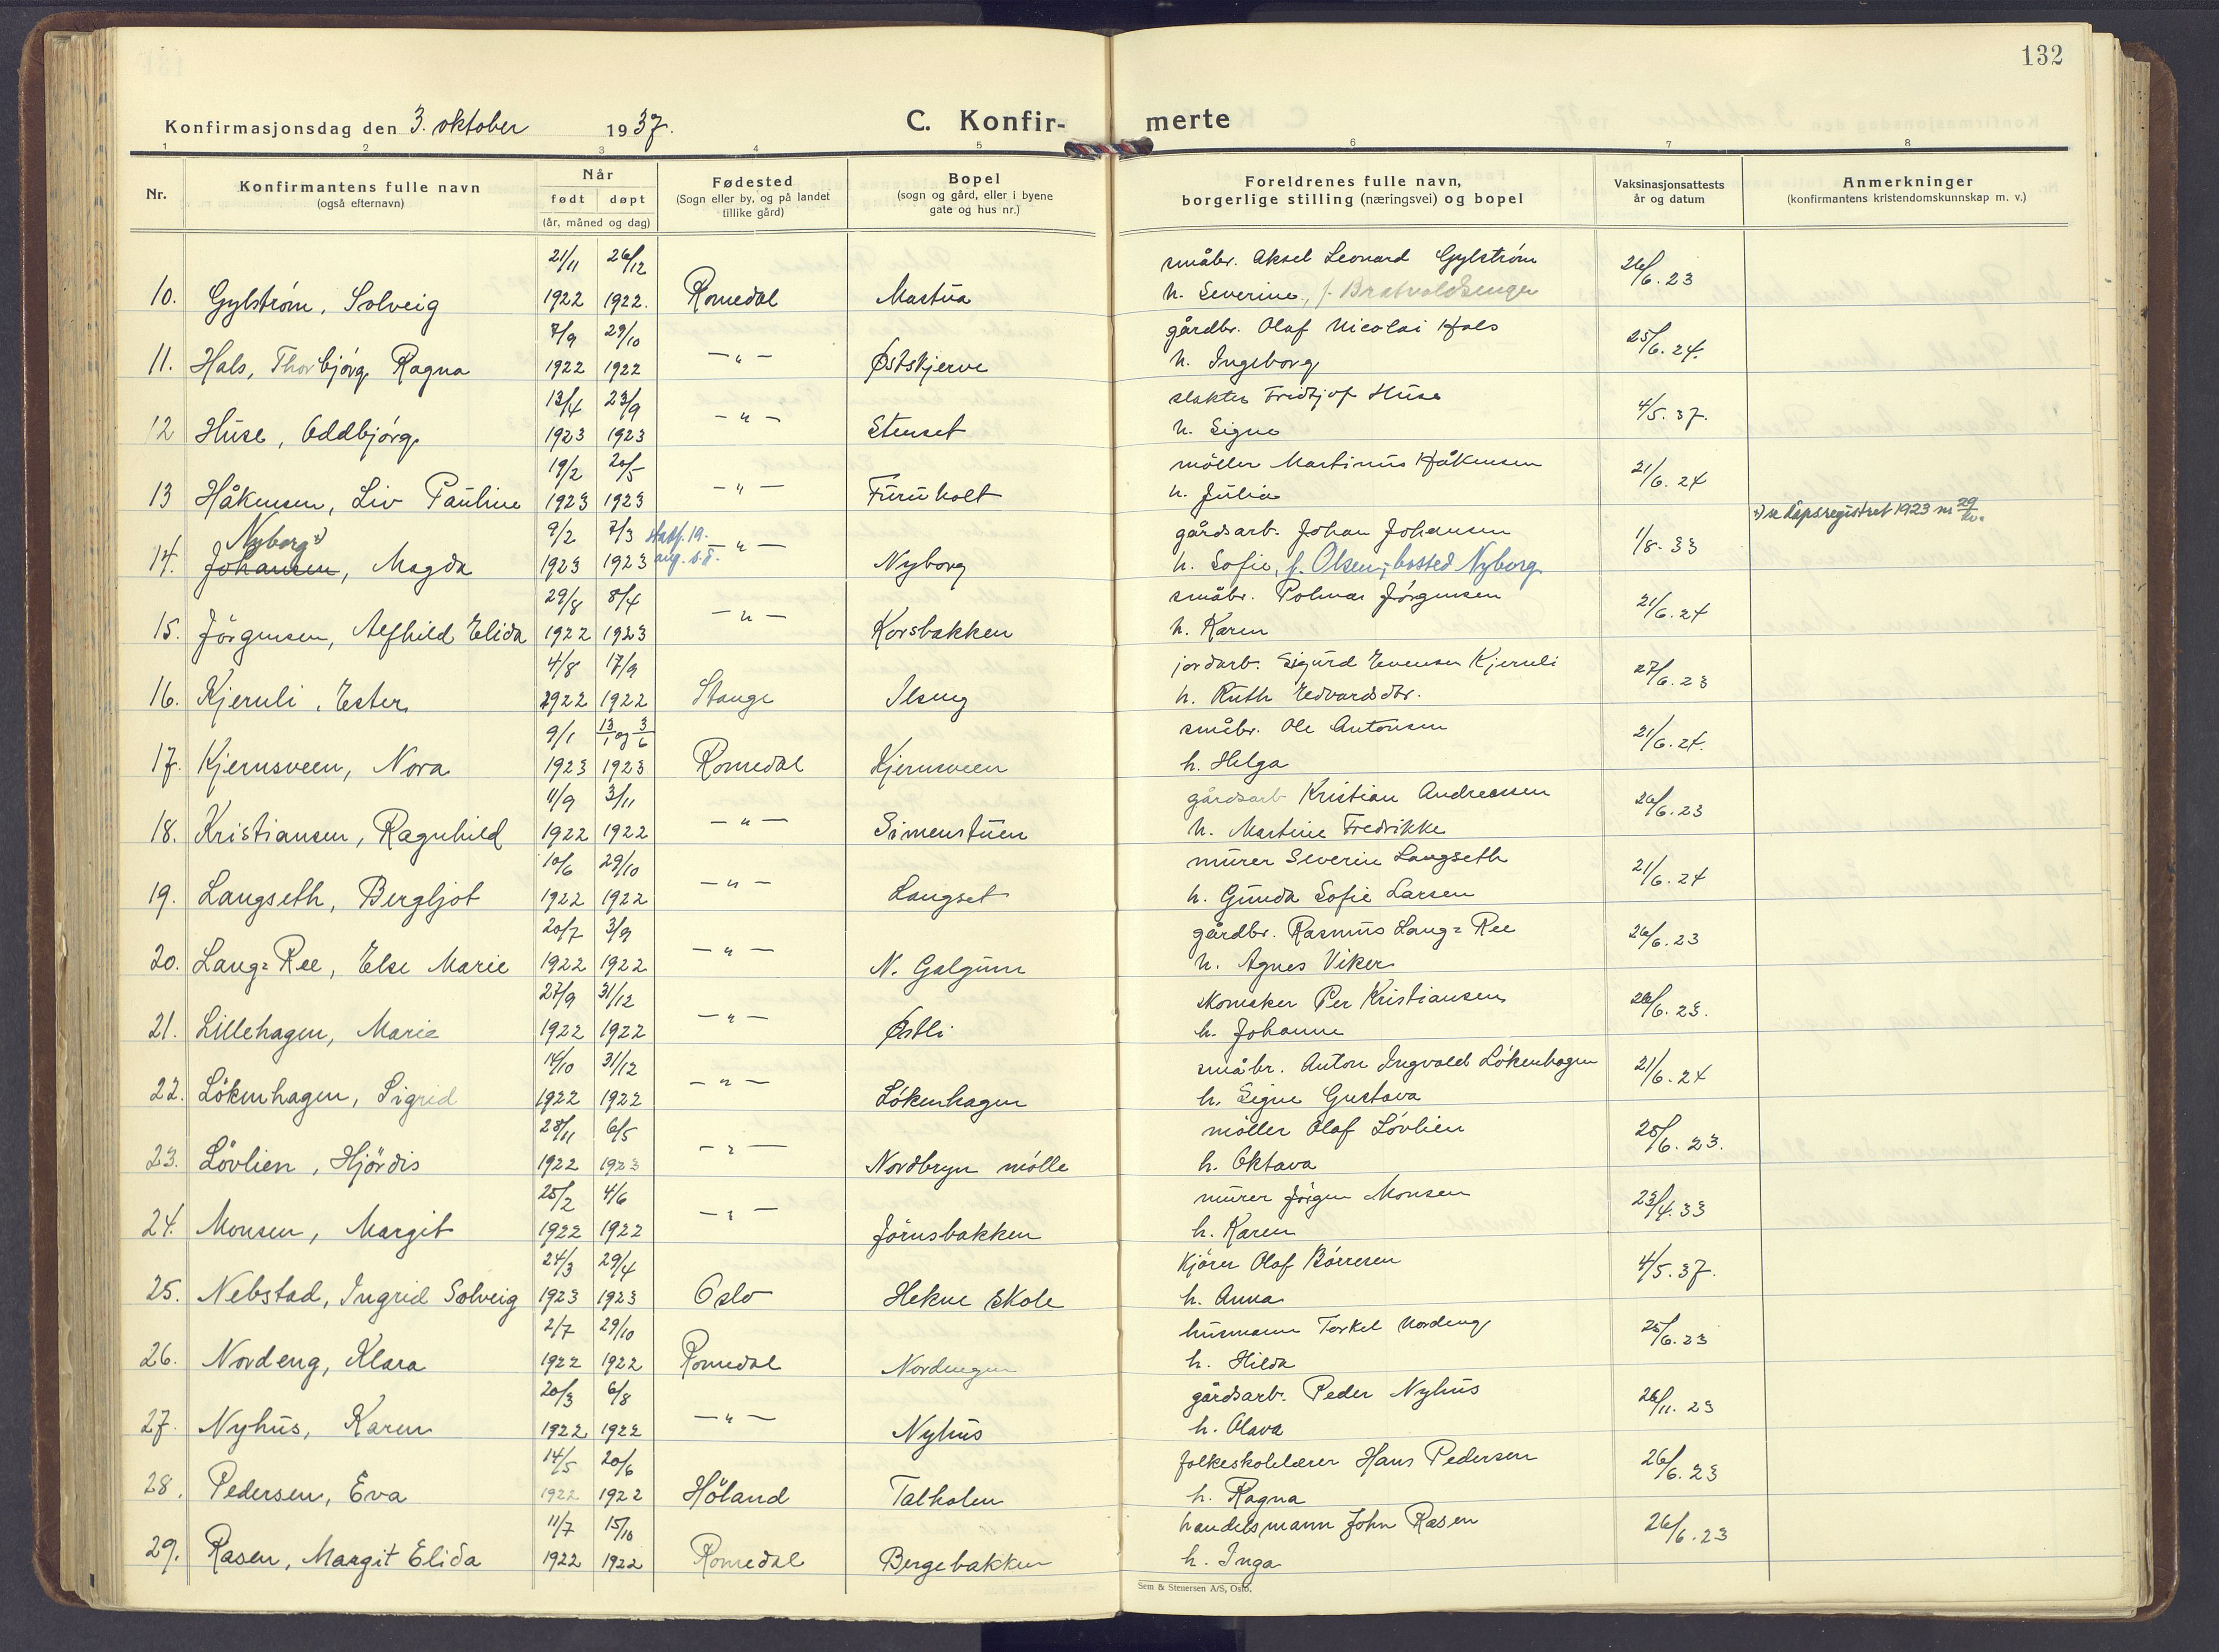 132
Konfirmasjonsdag den 3. oktober 1937.
C. Konfir- merte
1 2 3 4 5 6 7 8
Nr.
Konfirmantens fulle navn
(også efternavn)
Når
født døpt
(år, måned og dag)
Fødested
(Sogn eller by, og på landet
tillike gård)
Bopel
(sogn og gård, eller i byene
gate og hus nr.)
Foreldrenes fulle navn,
borgerlige stilling (næringsvei) og bopel
Vaksinasjonsattests
år og datum
Anmerkninger
(konfirmantens kristendomskunnskap m. v.)
21/11 26/12 småbr. Aksel Leonard Gylstrøm 26/6.23
10. Gylstrøm, Solveig 1922 1922. Romedal Mastua h. Severine, f. Bratvoldsenger
7/9 29/10 gårdbr. Olaf Nicolai Hals 25/6.24.
11. Hals, Thorbjørg Ragna 1922 1922 -"- Østskjerve h. Ingeborg
13/4 23/9 slakter Fridtjof Huse 4/5.37.
12 Huse, Oddbjørg 1923 1923 -"- Stenset h. Signe
19/2 20/5 møller Martinus Håkensen 21/6.24
13 Håkensen, Liv Pauline 1923 1923 -"- Furuholt h. Julia
x) se dåpsregistret 1923 nr 29
Nyborg x) 9/2 7/3 gårdsarb. Johan Johansen 1/8.33
14. Johansen, Magda 1923 1923 -"- Nyborg h. Sofie, f. Olsen, bosted Nyborg
29/8 8/4 småbr. Polmar Jørgensen 21/6.24
15. Jörgensen, Alfhild Elida 1922 1923 -"- Korsbakken h. Karen
4/8 17/9 jordarb. Sigurd Evensen Kjernli 27/6.23
16. Kjernli, Ester 1922 1922 Stange Ilseng h. Ruth Edvardsdtr.
9/1 13/1 og 3/6 småbr. Ole Antonsen 21/6.24.
17. Kjernsveen, Nora 1923 1923 Romedal Kjernsveen h. Helga
11/9 3/11 gårdsarb Kristian Andreassen 26/6.23
18. Kristiansen, Ragnhild 1922 1922 -"- Simenstuen h. Martine Fredrikke
10/6 29/10 murer Severin Langseth 21/6.24
19. Langseth, Bergljot 1922 1922 -"- Langset h. Gunda Sofie Larsen
20/7 3/9 gårdbr. Rasmus Lang=Ree 26/6.23
20. Lang=Ree, Else Marie 1922 1922 -"- N. Galgum h. Agnes Viker
27/9 31/12 skomaker Per Kristiansen 26/6.23.
21. Lillehagen, Marie 1922 1922 -"- Østli h. Johanne
14/10 31/12 småbr. Anton Ingvald Løkenhagen 21/6.24
22. Lökenhagen, Sigrid 1922 1922 -"- Løkenhagen h. Signe Gustava
28/11 6/5 møller Olaf Løvlien 25/6.23.
23. Lövlien, Hjördis 1922 1923 -"- Nordbryn mölle h. Oktava
25/2 4/6 murer Jörgen Monsen 23/4.33
24. Monsen, Margit 1922 1922 -"- Jörnsbakken h. Karen
24/3 29/4 kjører Olaf Børresen 4/5.37.
25. Nebstad, Ingrid Solveig 1923 1923 Oslo Hekne skole h. Anna
2/7 29/10 husmann Torkel Nordeng 25/6.23
26. Nordeng, Klara 1922 1922 Romedal Nordengen h. Hilda
20/3 6/8 gårdsarb. Peder Nyhus 26/11.23
27. Nyhus, Karen 1922 1922 -"- Nyhus h. Olava
14/5 20/6 folkeskolelærer Hans Pedersen 26/6.23
28. Pedersen, Eva 1922 1922 Höland Talholen h. Ragna
11/7 15/10 handelsmann John Rasen 26/6.23
29. Rasen, Margit Elida 1922 1922 Romedal Bergebakken h. Inga
Sem & Stenersen A/S, Oslo.